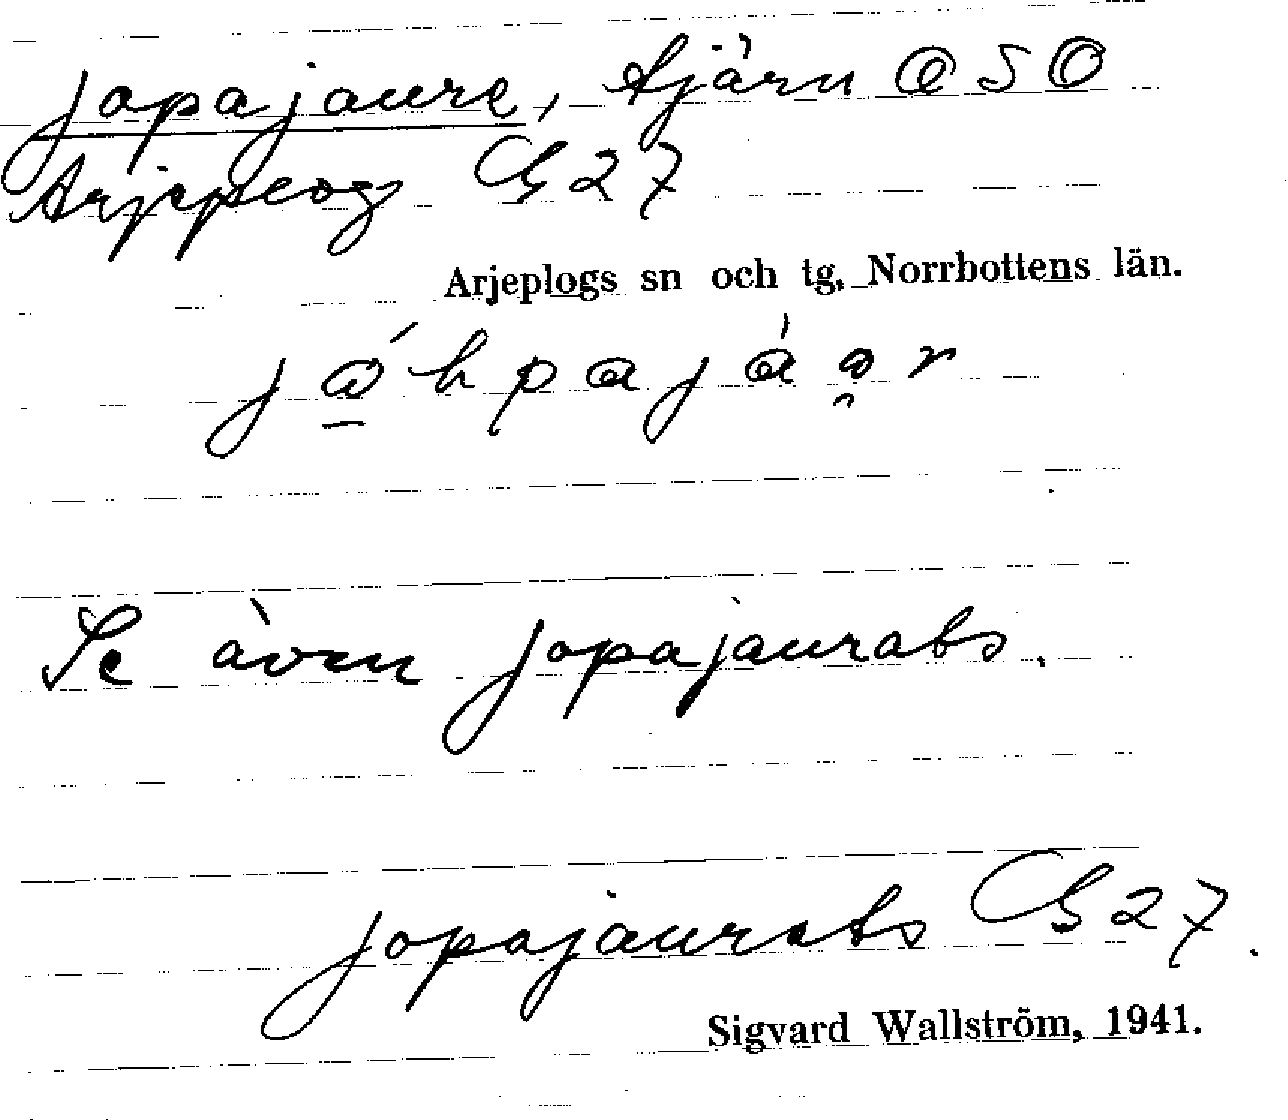 Jopajaure, tjärn OSO
Arjeplog G27
Arjeplogs sn och tg, Norrbottens län.
jåhpajaar
Se även Jopajaurats.
Jopajaurats G27.
Sigvard Wallström, 1941.